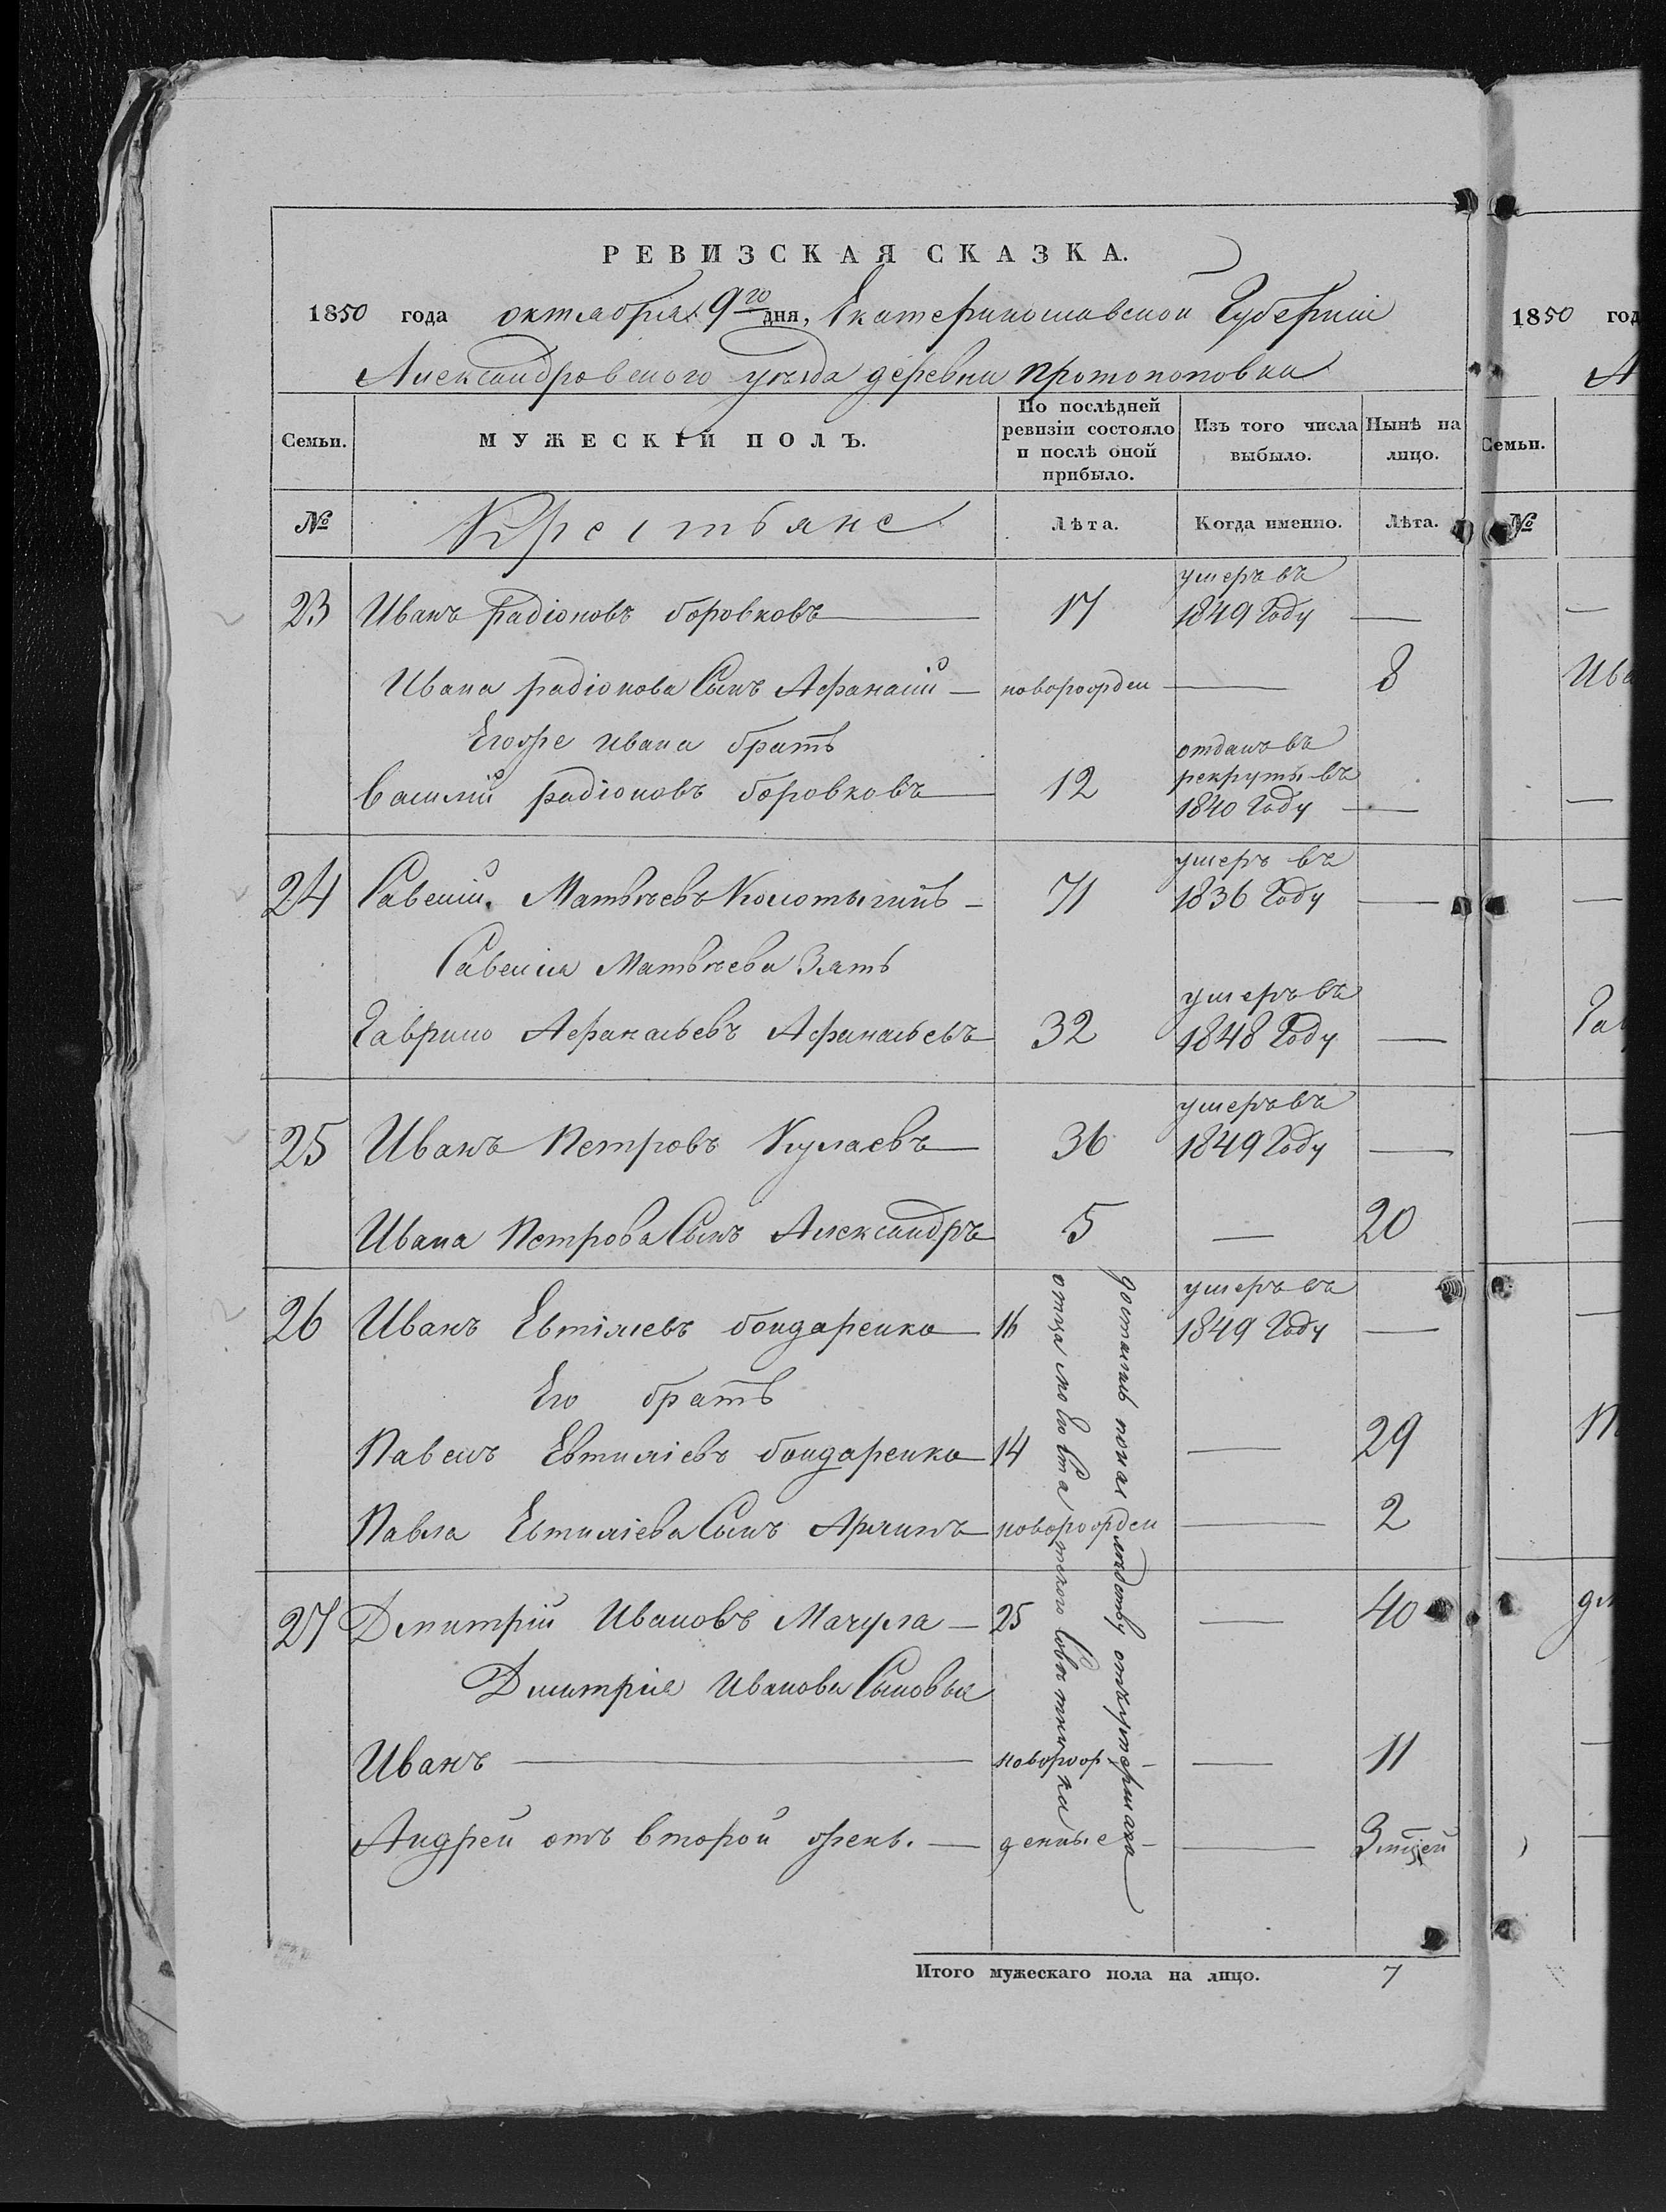 РЕВИЗСКАЯ СКАЗКА.
1850 года октября 9го дня, Екатеринославской Губерніи
Александровского уезда деревни Протопоповки
Семьи. МУЖЕСКІЙ ПОЛЪ. По послѣдней ревизіи состояло и послѣ оной прибыло. Изъ того числа выбыло. Нынѣ на лицо.
№ Крестьяне Лѣта. Когда именно. Лѣта.
23 Иванъ Радіоновъ боровковъ 17 умеръ въ 1849 Году —
Ивана радіонова Сынъ Афанасій — новорожден — 8
Егоже ивана братъ
василій радіоновъ боровковъ 12 отданъ въ рекруты въ 1840 Году —
24 Савелій Матвѣевъ 71 умеръ въ 1836 Году —
Савелія Матвѣева Зять
Гаврило Афанасьевъ Афанасьевъ 32 умеръ въ 1848 Году —
25 Иванъ Петровъ Кулаевъ 36 умеръ въ 1849 Году —
Ивана Петрова Сынъ Александръ 5 — 20
26 Иванъ Евтіхіевъ бондаренко 16 умеръ въ 1849 Году —
Его братъ
Павелъ Евтихіевъ бондаренко 14 — 29
Павла Евтихіева Сынъ новорожден — 2
27 Дмитрій Ивановъ Мачула 25 — 40
Дмитрія Иванова Сыновья
Иванъ новорож — 11
Андрей отъ второй жены. — денные — 3
отца
Итого мужескаго пола на лицо. 7
1850 год
А
Семьи.
№
Ива
Гав
П